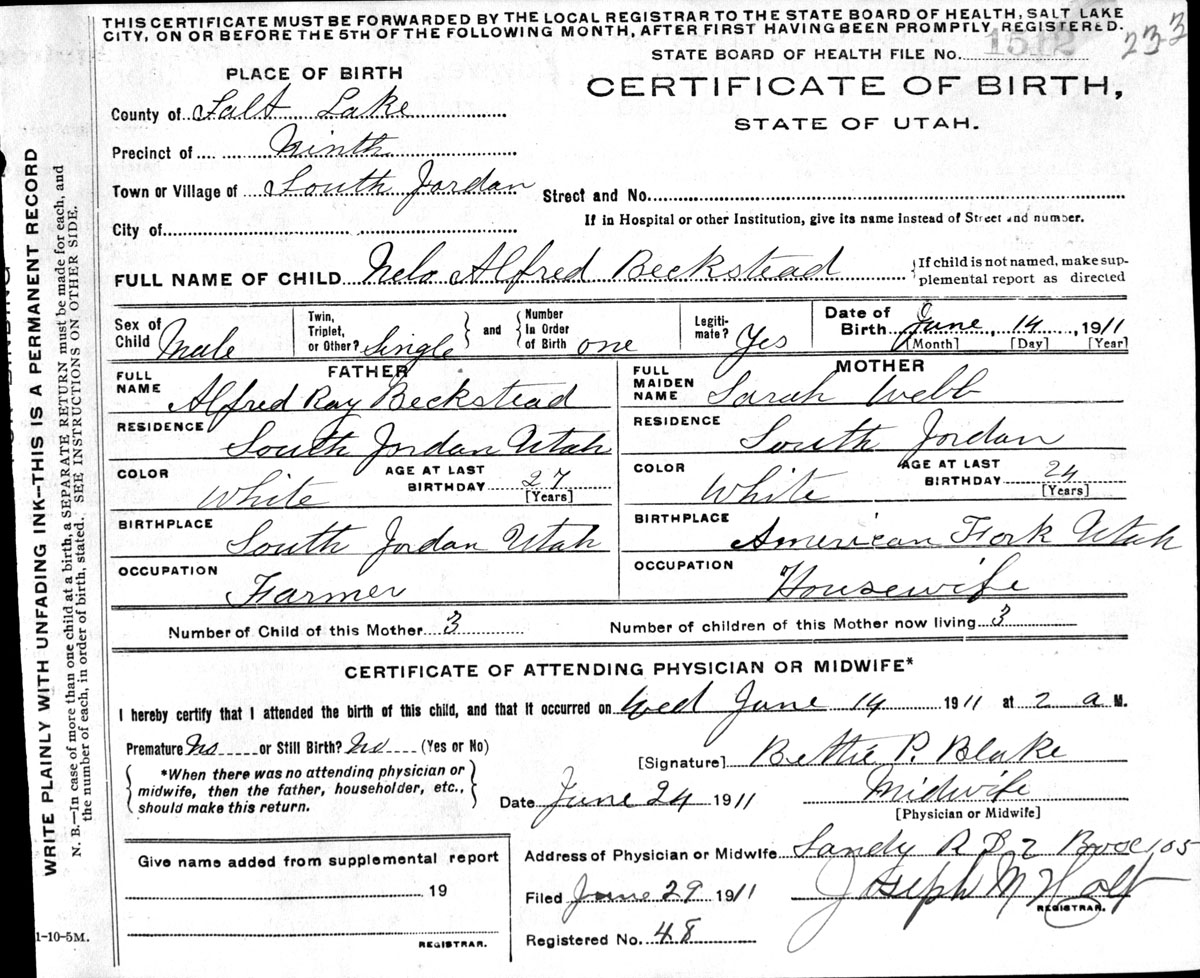 THIS CERTIFICATE MUST BE FORWARDED BY THE LOCAL REGISTRAR TO THE STATE BOARD OF HEALTH, SALT LAKE
CITY, ON OR BEFORE THE 5TH OF THE FOLLOWING MONTH, AFTER FIRST HAVING BEEN PROMPTLY REGISTERED.
233
STATE BOARD OF HEALTH FILE No. 1512
PLACE OF BIRTH
CERTIFICATE OF BIRTH,
STATE OF UTAH.
County of Salt Lake
Precinct of Ninth
Town or Village of South Jordan
Street and No.
City of
If in Hospital or other Institution, give its name instead of Street and number.
FULL NAME OF CHILD Nelo Alfred Beckstead
If child is not named, make sup-
plemental report as directed
Sex of Child Male
Twin, Triplet, or Other? Single and Number In Order of Birth one
Legiti-mate? Yes
Date of Birth June, 14, 1911
[Month] [Day] [Year]
FATHER
FULL NAME Alfred Ray Beckstead
RESIDENCE South Jordan Utah
COLOR White AGE AT LAST BIRTHDAY 27 [Years]
BIRTHPLACE South Jordan Utah
OCCUPATION Farmer
MOTHER
FULL MAIDEN NAME Sarah Webb
RESIDENCE South Jordan
COLOR White AGE AT LAST BIRTHDAY 24 [Years]
BIRTHPLACE American Fork Utah
OCCUPATION Housewife
Number of Child of this Mother 3 Number of children of this Mother now living 3
CERTIFICATE OF ATTENDING PHYSICIAN OR MIDWIFE*
I hereby certify that I attended the birth of this child, and that it occurred on Wed June 14 1911 at 2 a M.
Premature No or Still Birth? No (Yes or No)
*When there was no attending physician or
midwife, then the father, householder, etc.,
should make this return.
[Signature] Bettie P. Blake
Date June 24 1911 Midwife
[Physician or Midwife]
Give name added from supplemental report
19
REGISTRAR.
Address of Physician or Midwife Sandy R D 2 Box 105
Filed June 29 1911 Joseph M Holt
REGISTRAR.
Registered No. 48
1-10-5M.
WRITE PLAINLY WITH UNFADING INK--THIS IS A PERMANENT RECORD
N. B.—In case of more than one child at a birth, a SEPARATE RETURN must be made for each, and
the number of each, in order of birth, stated. SEE INSTRUCTIONS ON OTHER SIDE.